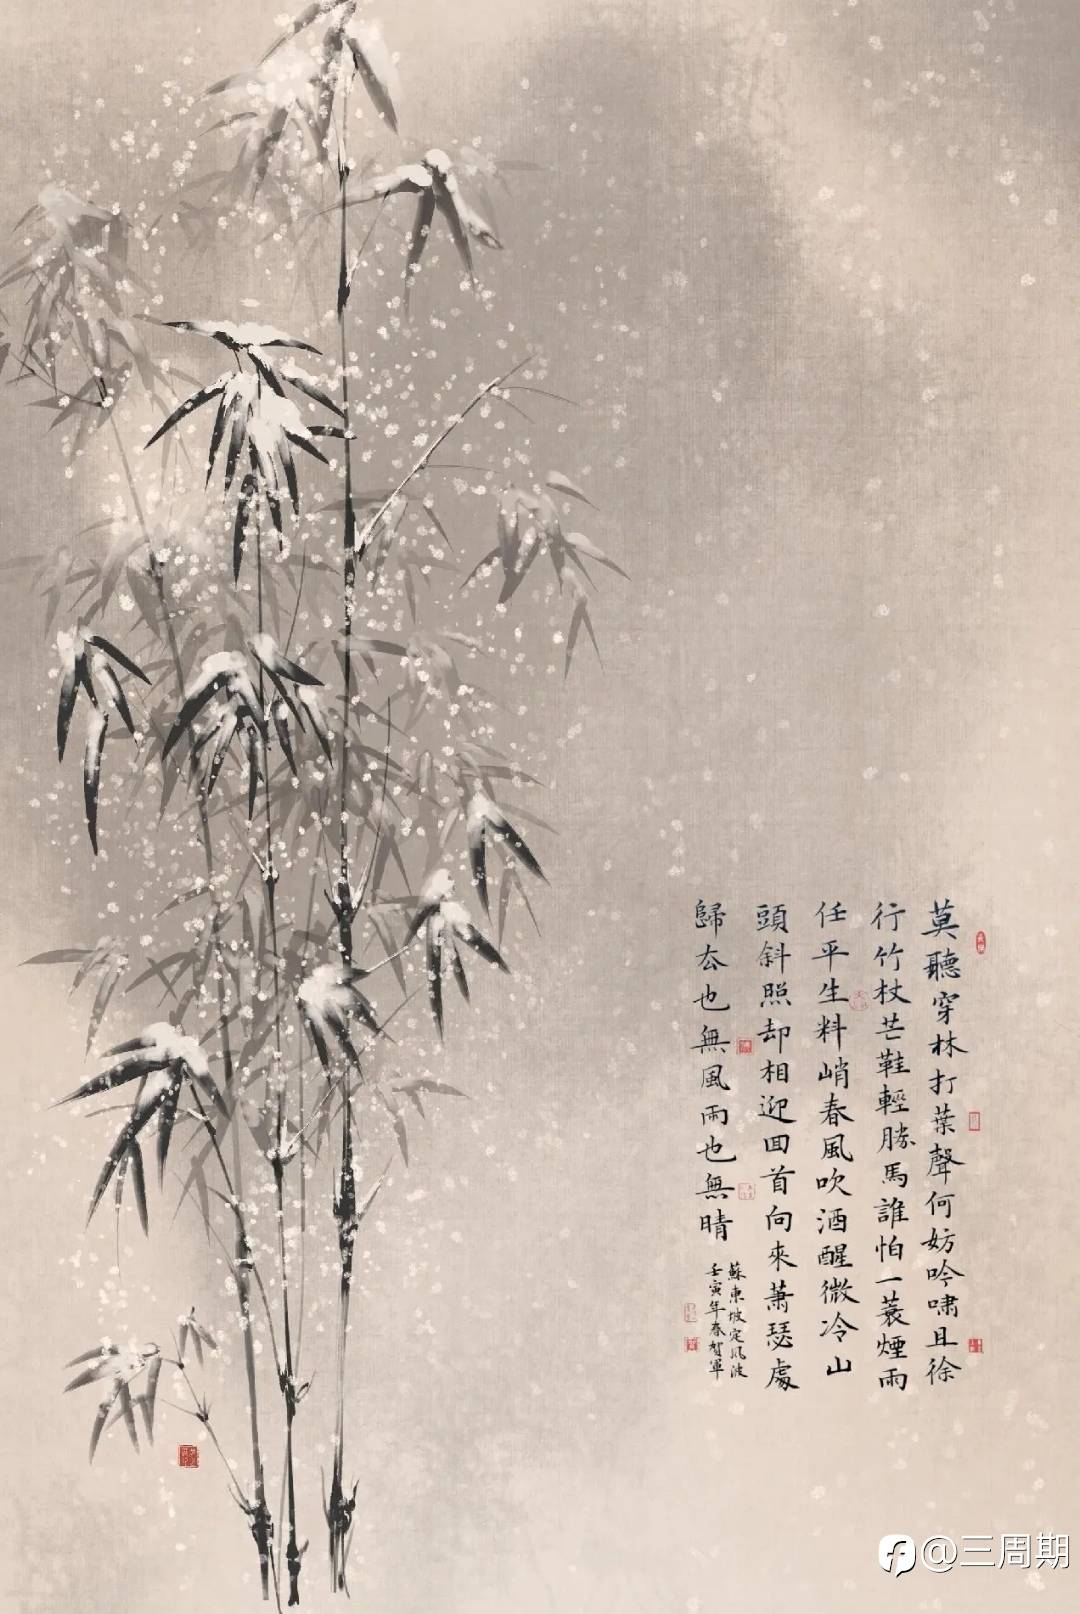 莫聽穿林打葉聲何妨吟嘯且徐
行竹杖芒鞋輕勝馬誰怕一蓑煙雨
任平生料峭春風吹酒醒微冷山
頭斜照却相迎回首向來蕭瑟處
歸去也無風雨也無晴
蘇東坡定风波
壬寅年春賀軍
@三周期